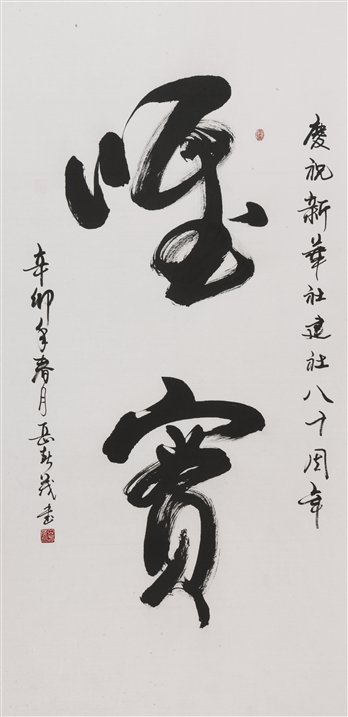 慶祝新華社建社八十周年
唯實
辛卯年春月岳茂書